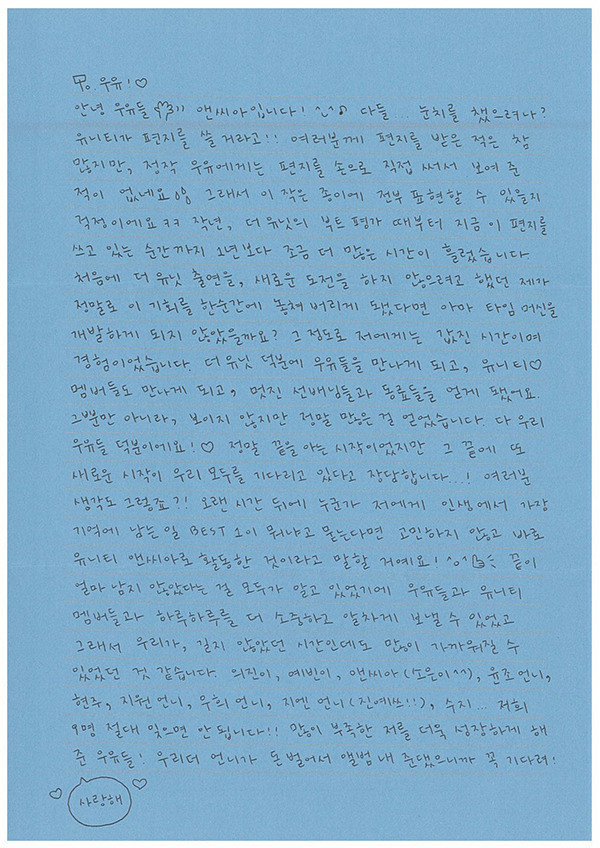 To. 우유! ♡
안녕 우유들 )) 앤씨아입니다! ^-^♪ 다들.. 눈치를 챘으려나?
유니티가 편지를 쓸 거라고!! 여러분께 편지를 받은 적은 참
많지만, 정작 우유에게는 편지를 손으로 직접 써서 보여 준
적이 없네요 그래서 이 작은 종이에 전부 표현할 수 있을지
걱정이에요 ㅋㅋ 작년, 더 유닛의 부트 평가 때부터 지금 이 편지를
쓰고 있는 순간까지 1년보다 조금 더 많은 시간이 흘렀습니다
처음에 더 유닛 출연을, 새로운 도전을 하지 않으려고 했던 제가
정말로 이 기회를 한순간에 놓쳐 버리게 됐다면 아마 타임 머신을
개발하게 되지 않았을까요? 그 정도로 저에게는 값진 시간이며
경험이었습니다. 더 유닛 덕분에 우유들을 만나게 되고, 유니티♡
멤버들도 만나게 되고, 멋진 선배님들과 동료들을 얻게 됐어요.
그뿐만 아니라, 보이지 않지만 정말 많은 걸 얻었습니다. 다 우리
우유들 덕분이에요! ♡ 정말 끝을 아는 시작이었지만 그 끝에 또
새로운 시작이 우리 모두를 기다리고 있다고 장담합니다...! 여러분
생각도 그렇죠?! 오랜 시간 뒤에 누군가 저에게 인생에서 가장
기억에 남는 일 BEST 1이 뭐냐고 묻는다면 고민하지 않고 바로
유니티 앤씨아로 활동한 것이라고 말할 거예요! ^o^ 끝이
얼마 남지 않았다는 걸 모두가 알고 있었기에 우유들과 유니티
멤버들과 하루하루를 더 소중하고 알차게 보낼 수 있었고
그래서 우리가, 길지 않았던 시간인데도 많이 가까워질 수
있었던 것 같습니다. 의진이, 예빈이, 앤씨아(소은이^^), 윤조언니,
현주, 지원 언니, 우희 언니, 지엔 언니(진예쓰!!), 수지... 저희
9명 절대 잊으면 안 됩니다!! 많이 부족한 저를 더욱 성장하게 해
준 우유들! 우리더 언니가 돈 벌어서 앨범 내 준댔으니까 꼭 기다려!
♡ 사랑해 ♡